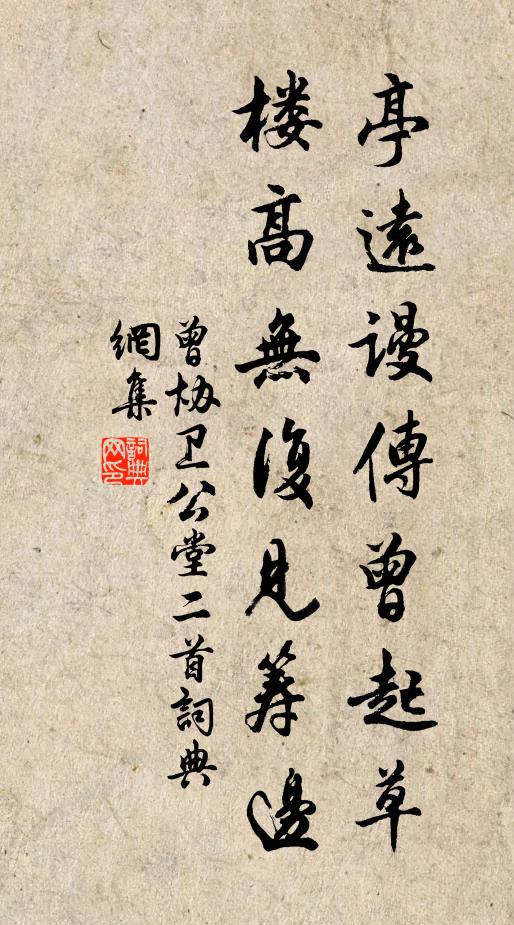 亭遠謾傳曾起草
樓高無復見籌邊
曾协卫公堂二首詞典
網集
詞典
网印